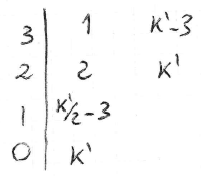 3 | 1 K'-3
2 | 2 K'
1 | K'/2-3
0 | K'